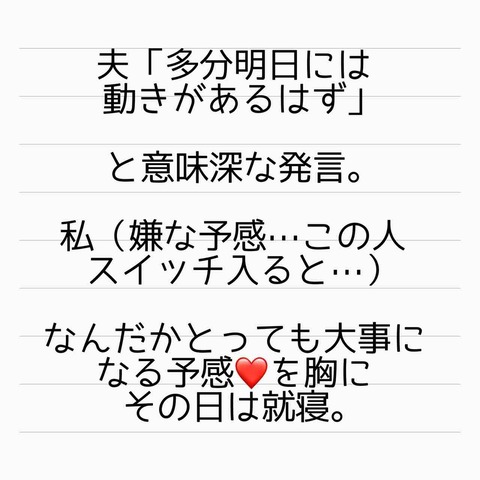 夫「多分明日には
動きがあるはず」
と意味深な発言。
私（嫌な予感…この人
スイッチ入ると…）
なんだかとっても大事に
なる予感❤️を胸に
その日は就寝。